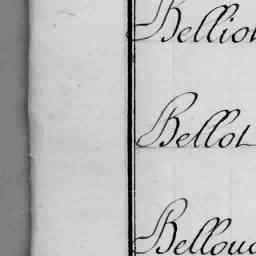 Belliot
Bellot
Belloua